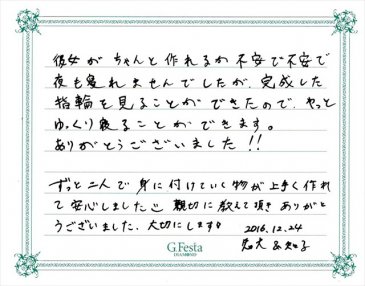 彼女がちゃんと作れるか不安で不安で
夜も寝れませんでしたが、完成した
指輪を見ることができたので、やっと
ゆっくり寝ることができます。
ありがとうございました!!
ずっと二人で身に付けていく物が上手く作れ
て安心しました 親切に教えて頂きありがと
うございました。大切にします!
2016.12.24
G.Festa
DIAMOND